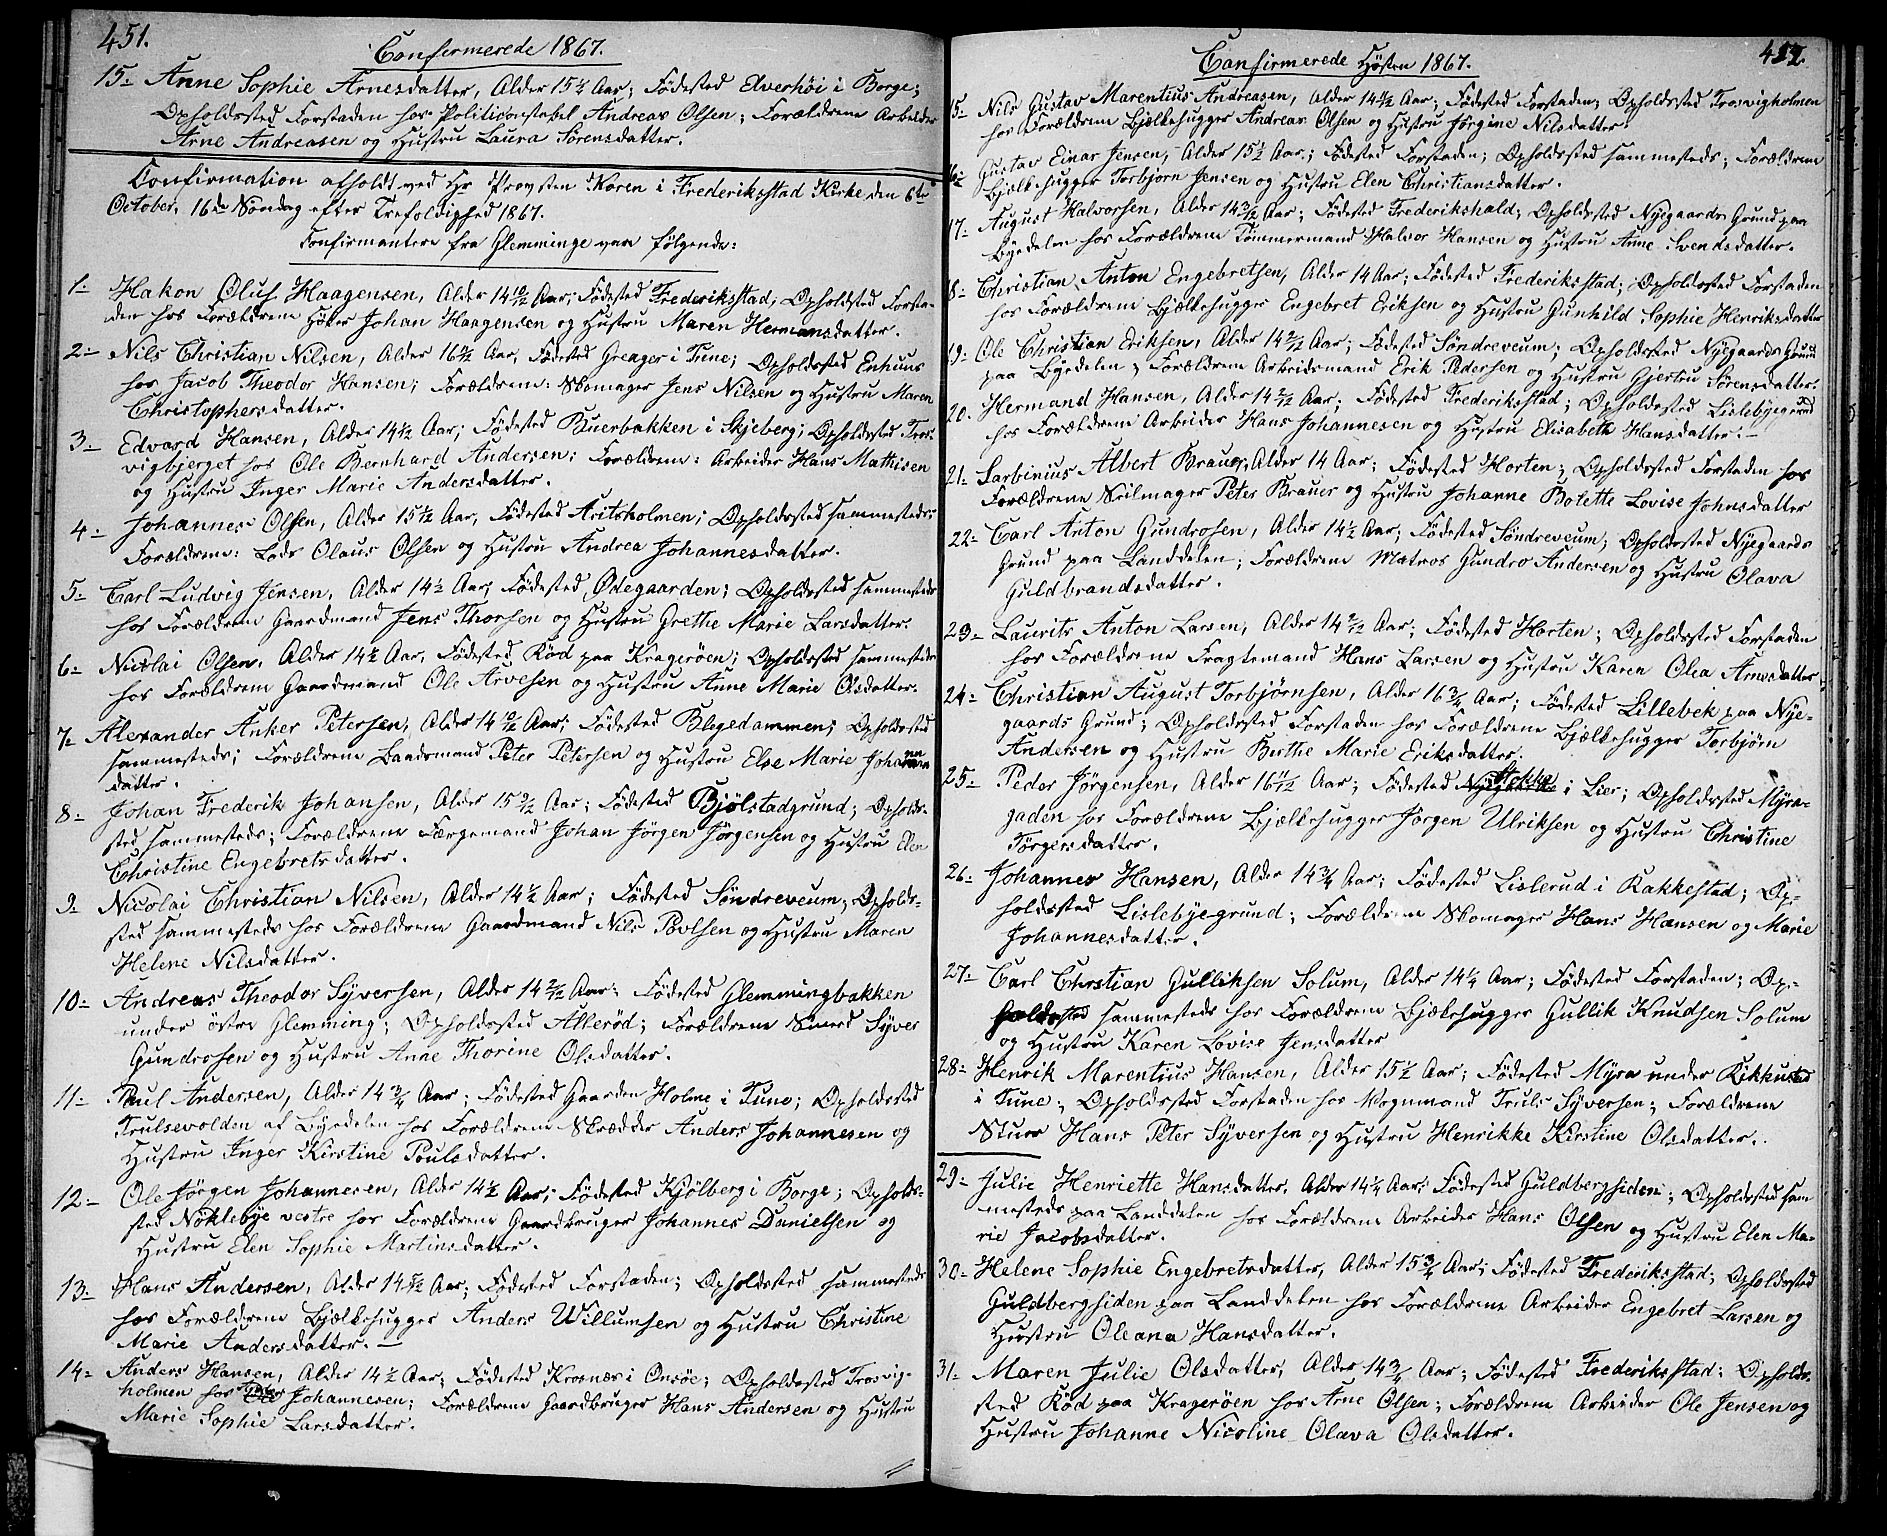 451.
Confirmerede 1867.
15. Anne Sophie Arnesdatter, Alder 15¼ Aar; Födested Elverhöi i Borge;
Opholdssted Forstaden hos Politiconstabel Andreas Olsen; Forældrene Arbeider
Arne Andreasen og Hustru Laura Sörensdatter.
Confirmation afholdt ved Hr Provsten Koren i Frederiksstad Kirke den 6te
October, 16de Söndag efter Trefoldighed 1867.
Confirmantere fra Glemminge vare følgende:
1. Hakon Oluf Haagensen, Alder 14 10/12 Aar; Födested Frederiksstad; Opholdssted Forsta-
den hos Forældrene Höker Johan Haagensen og Hustru Maren Hermansdatter.
2. Nils Christian Nilsen, Alder 16 Aar, Födested Greager i Tune; Opholdssted Enhuus
hos Jacob Theodor Hansen; Forældrene: Skomager Jens Nilsen og Hustru Maren
Christophersdatter.
3. Edvard Hansen, Alder 14½ Aar; Födested Buerbakken i Skjeberg; Opholdssted Tros-
vigbjerget hos Ole Bernhard Andersen; Forældrene: Arbeider Hans Mathisen
og Hustru Inger Marie Andersdatter.
4. Johannes Olsen, Alder 15½ Aar, Födested Aritsholmen; Opholdssted sammesteds;
Forældrene: Lods Olaus Olsen og Hustru Andrea Johannesdatter.
5. Carl Ludvig Jensen, Alder 14½ Aar, Födested Ødegaarden; Opholdssted sammesteds
hos Forældrene Gaardmand Jens Thorsen og Hustru Grethe Marie Larsdatter.
6. Nicolai Olsen, Alder 14½ Aar, Födested Röd paa Kragerøen; Opholdssted sammesteds
hos Forældrene Gaardmand Ole Arvesen og Hustru Anne Marie Olsdatter.
7. Alexander Anker Petersen, Alder 14 10/12 Aar; Födested Blegedammen; Opholdssted
sammesteds; Forældrene Baadsmand Peter Petersen og Hustru Else Marie Johannes
datter.
8. Johan Frederik Johansen, Alder 15 9/12 Aar; Födested Bjölstadgrund; Opholds-
sted sammesteds; Forældrene Færgemand Johan Jörgen Jörgensen og Hustru Elen
Christine Engebretsdatter.
9. Nicolai Christian Nilsen, Alder 14½ Aar; Födested Söndreveum; Opholds-
sted sammesteds hos Forældrene Gaardmand Nils Povlsen og Hustru Maren
Helene Nilsdatter.
10. Andreas Theodor Syversen, Alder 14 2/12 Aar; Födested Glemmingbakken
under östre Glemming; Opholdssted Allerød; Forældrene Smed Syver
Gundrosen og Hustru Anne Thorine Olsdatter.
11. Paul Andersen, Alder 14¾ Aar; Födested Gaarden Holme i Tune; Opholdssted
Trulsevolden af Byedelen hos Forældrene Skrædder Anders Johannesen og
Hustru Inger Kirstine Poulsdatter.
12. Ole Jörgen Johannesen, Alder 14½ Aar; Födested Kjölberg i Borge; Opholds-
sted Nöklebye vestre hos Forældrene Gaardbruger Johannes Danielsen og
Hustru Elen Sophie Martinsdatter.
13. Hans Andersen, Alder 14 5/12 Aar; Födested Forstaden; Opholdssted sammesteds
hos Forældrene Bjælkehugger Anders Willumsen og Hustru Christine
Marie Andersdatter.
14. Anders Hansen, Alder 14½ Aar; Födested Krosnæs i Onsöe; Opholdssted Trosvig-
holmen hos Johannesen; Forældrene Gaardbruger Hans Andersen og Hustru
Marie Sophie Larsdatter.
452.
Confirmerede Hösten 1867.
15. Nils Gustav Marentius Andreasen, Alder 14 Aar; Födested Forstaden; Opholdssted Trosvigholmen
hos Forældrene Bjælkehugger Andreas Olsen og Hustru Jörgine Nilsdatter.
16. Gustav Einar Jensen, Alder 15½ Aar; Födested Forstaden; Opholdssted sammesteds; Forældrene
Bjælkehugger Torbjörn Jensen og Hustru Elen Christiansdatter.
17. August Halvorsen, Alder 14 3/12 Aar; Födested Frederikshald; Opholdssted Nyegaards Grund paa
Byedelen hos Forældrene Tömmermand Halvor Hansen og Hustru Anne Svendsdatter.
18. Christian Anton Engebretsen, Alder 14 Aar; Födested Frederiksstad; Opholdssted Forstaden
hos Forældrene Bjælkehugger Engebret Eriksen og Hustru Gunhild Sophie Henriksdatter
19. Ole Christian Eriksen, Alder 14 2/12 Aar; Födested Söndreveum; Opholdssted Nyegaards Grund
paa Byedelen; Forældrene Arbeidsmand Erik Pedersen og Hustru Gjertru Sörensdatter.
20. Hermand Hansen, Alder 14 2/12 Aar; Födested Frederiksstad; Opholdssted Lislebyegrund
hos Forældrene Arbeider Hans Johannesen og Hustru Elisabeth Hansdatter.
21. Sarbinius Albert Brauer, Alder 14 Aar; Födested Horten; Opholdssted Forstaden hos
Forældrene Seilmager Peter Brauer og Hustru Johanne Bolette Lovise Johnsdatter
22. Carl Anton Gundrosen, Alder 14½ Aar; Födested Söndreveum; Opholdssted Nyegaards
Grund paa Landdelen; Forældrene Matros Gundro Andersen og Hustru Olava
Guldbrandsdatter.
23. Laurits Anton Larsen, Alder 14 2/12 Aar; Födested Horten; Opholdssted Forstaden
hos Forældrene Fragtemand Hans Larsen og Hustru Karen Olea Arnesdatter
24. Christian August Torbjörnsen, Alder 16¾ Aar; Födested Lillebek paa Nye-
gaards Grund; Opholdssted Forstaden hos Forældrene Bjælkehugger Torbjörn
Andersen og Hustru Birthe Marie Eriksdatter.
25. Peder Jörgensen, Alder 16 Aar; Födested Stokke i Lier; Opholdssted Myra-
gaden hos Forældrene Bjælkehugger Jörgen Ulriksen og Hustru Christine
Törgersdatter.
26. Johannes Hansen, Alder 14¾ Aar; Födested Lislerud i Rakkestad; Op-
holdssted Lislebyegrund; Forældrene Skomager Hans Hansen og Marie
Johannesdatter.
27. Carl Chrstian Gulliksen Solum, Alder 14¼ Aar; Födested Forstaden; Op-
holdssted sammesteds hos Forældrene Bjækehugger Gullik Knudsen Solum
og Hustru Karen Lovise Jensdatter
28. Henrik Marentius Hansen, Alder 15½ Aar; Födested Myra under Kikkustad
i Tune; Opholdssted Forstaden hos Vognmand Truls Syversen; Forældrene
Stuer Hans Peter Syversen og Hustru Henrikke Kirstine Olsdatter.
29. Julie Henriette Hansdatter, Alder 14¼ Aar; Födested Guldbergsiden; Opholdssted sam-
mesteds paa Landdelen hos Forældrene Arbeider Hans Olsen og Hustru Elen Ma-
rie Jacobsdatter.
30. Helene Sophie Engebretsdatter, Alder 15¾ Aar; Födested Frederiksstad; Opholdssted
Guldbergsiden paa Landdelen hos Forældrene Arbeider Engebret Larsen og
Hustru Oleana Hansdatter.
31. Maren Julie Olsdatter, Alder 14¾ Aar; Födested Frederiksstad; Opholds-
sted Röd paa Kragerøen hos Arne Olsen; Forældrene Arbeider Ole Jensen og
Hustru Johanne Nicoline Olava Olsdatter.